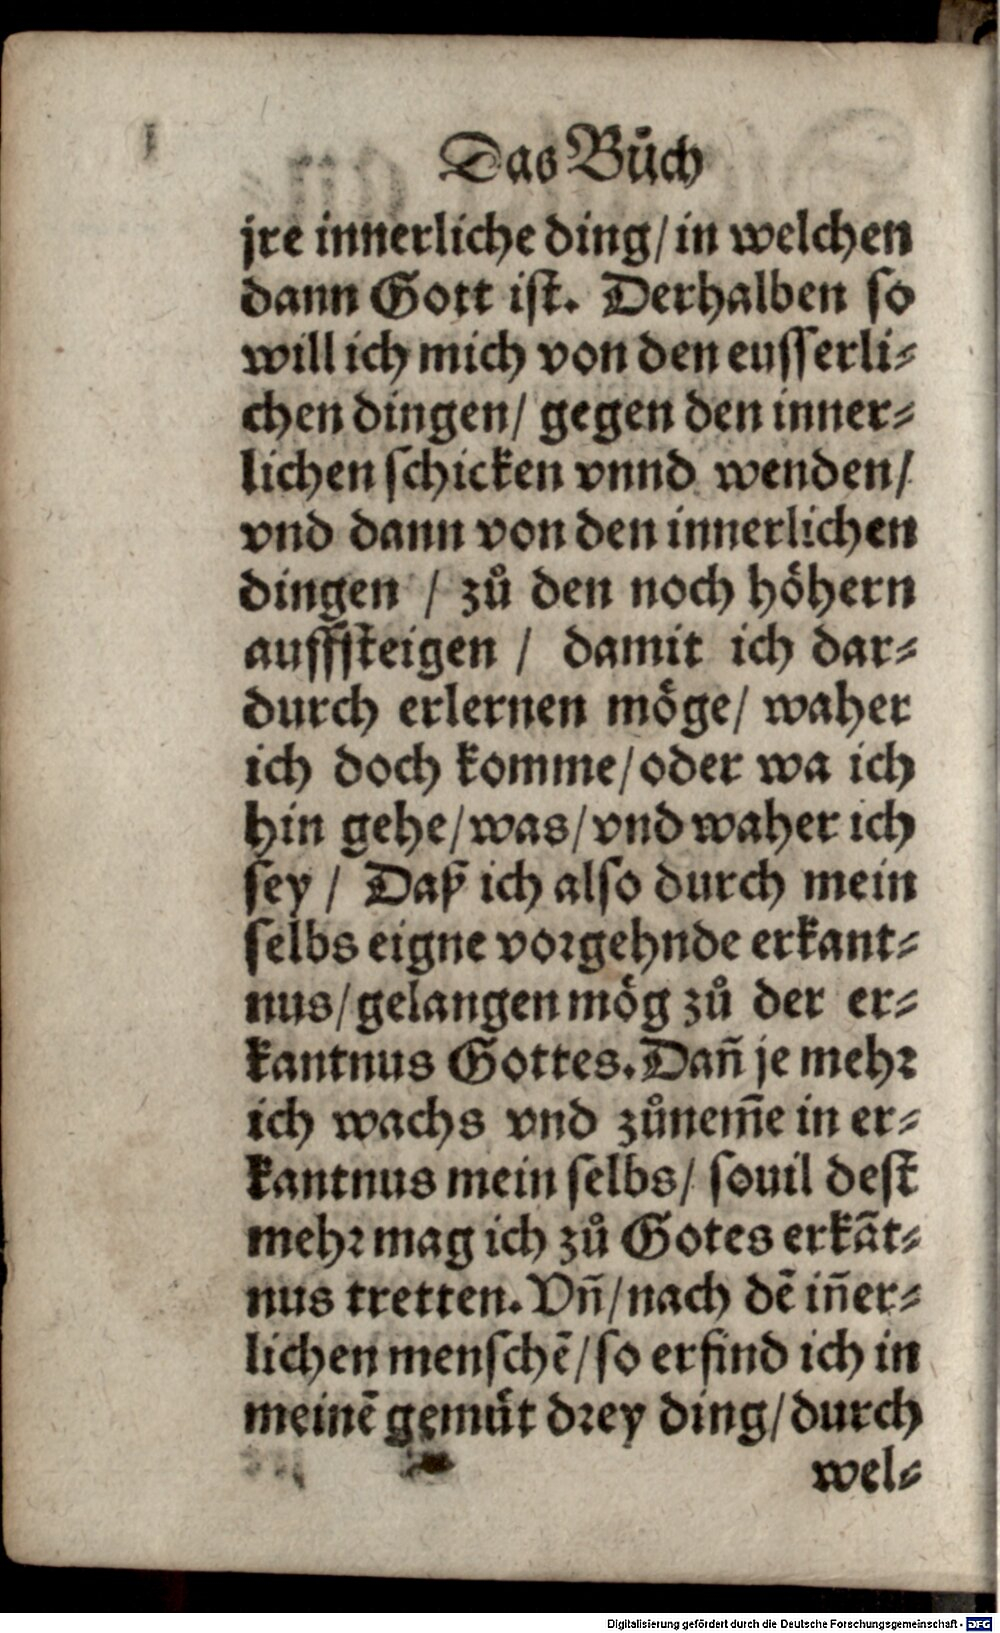 Das Bůch
jre innerliche ding/ in welchen
dann Gott ist. Derhalben so
will ich mich von den eusserli⸗
chen dingen/ gegen den inner⸗
lichen schicken vnnd wenden/
vnd dann von den innerlichen
dingen / zů den noch höhern
auffsteigen / damit ich dar⸗
durch erlernen möge/ waher
ich doch komme/ oder wa ich
hin gehe/ was/ vnd waher ich
sey / Daß ich also durch mein
selbs eigne vorgehnde erkant⸗
nus/ gelangen mög zů der er⸗
kantnus Gottes. Dañ je mehr
ich wachs vnd zůnem̃e in er⸗
kantnus mein selbs/ souil dest
mehr mag ich zů Gotes erkãt⸗
nus tretten. Vñ/ nach dẽ iñer⸗
lichen menschẽ/ so erfind ich in
meinẽ gemüt drey ding/ durch
wel⸗
Digitalisierung gefördert durch die Deutsche Forschungsgemeinschaft - DFG